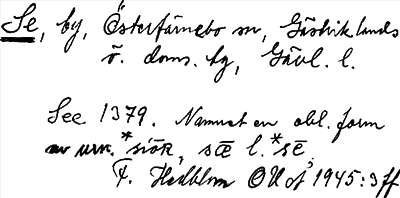 Se, by, Österfärnebo sn, Gästriklands
ö. doms. tg, Gävl. l.
See 1379. Namnet en obl. form
av urn. *siōR, sǣ l. *sē.
F. Hedblom OUÅ 1945: 3 ff